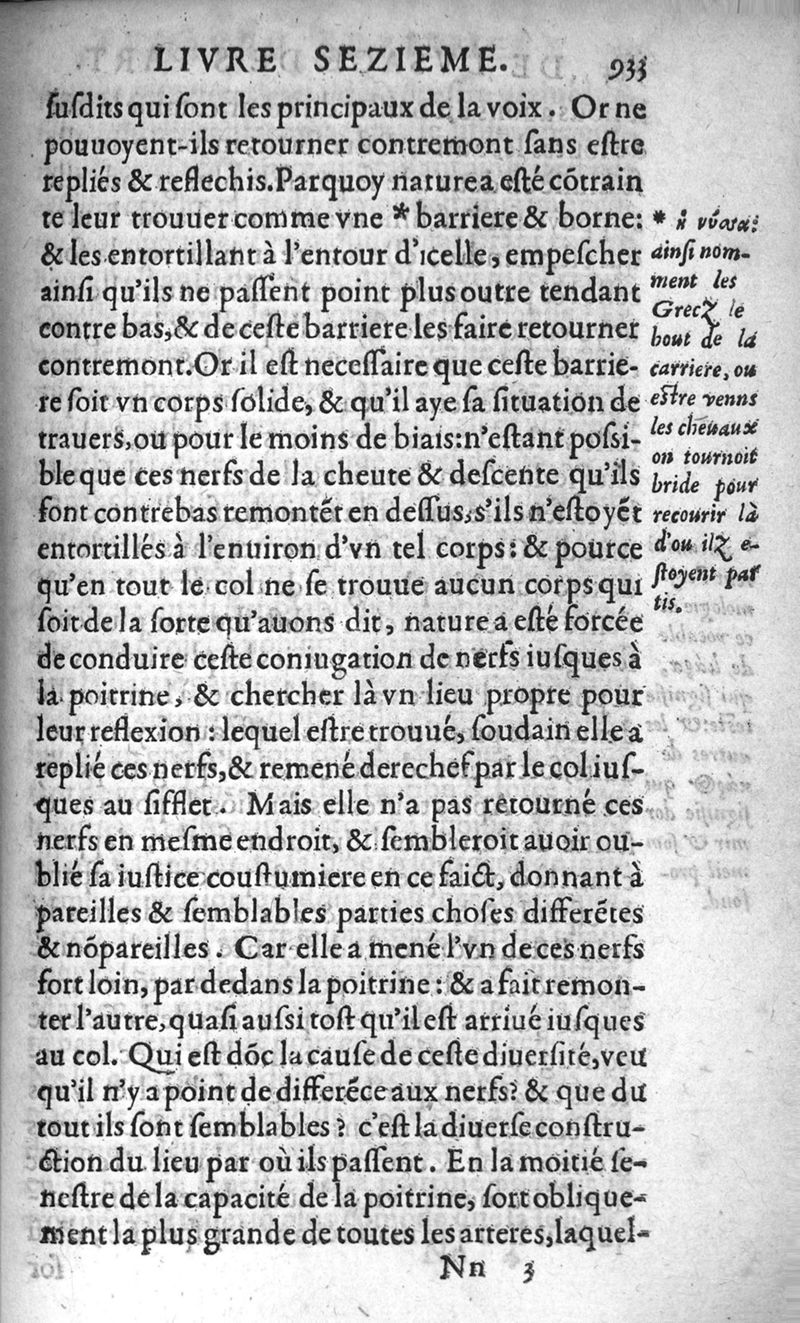 LIVRE SEZIEME. 933
ſuſdits qui ſont les principaux de la voix. Or ne
pouuoyent-ils retourner contremont ſans eſtre
repliés & reflechis. Parquoy nature a eſté cõtrain
te leur trouuer comme vne * barriere & borne:
& les entortillant à l'entour d'icelle, empeſcher
ainſi qu'ils ne paſſent point plus outre tendant
contre bas, & de ceſte barriere les faire retourner
contremont. Or il eſt neceſſaire que ceſte barrie-
re ſoit vn corps ſolide, & qu'il aye ſa ſituation de
trauers, ou pour le moins de biais: n'eſtant poſsi-
ble que ces nerfs de la cheute & deſcente qu'ils
font contrebas remontẽt en deſſus, s'ils n'eſtoyẽt
entortillés à l'enuiron d'vn tel corps: & pource
qu'en tout le col ne ſe trouue aucun corps qui
ſoit de la ſorte qu'auons dit, nature a eſté forcée
de conduire ceſte coniugation de nerfs iuſques à
la poitrine, & chercher là vn lieu propre pour
leur reflexion: lequel eſtre trouué, ſoudain elle a
replié ces nerfs, & remené derechef par le col iuſ-
ques au ſifflet. Mais elle n'a pas retourné ces
nerfs en meſme endroit, & ſembleroit auoir ou-
blié ſa iuſtice couſtumiere en ce faict, donnant à
pareilles & ſemblables parties choſes differẽtes
& nõpareilles. Car elle a mené l'vn de ces nerfs
fort loin, par dedans la poitrine: & a fait remon-
ter l'autre, quaſi auſsi toſt qu'il eſt arriué iuſques
au col. Qui eſt dõc la cauſe de ceſte diuerſité, veu
qu'il n'y a point de differẽce aux nerfs? & que du
tout ils ſont ſemblables? c'eſt la diuerſe conſtru-
ction du lieu par où ils paſſent. En la moitié ſe-
neſtre de la capacité de la poitrine, ſort oblique-
ment la plus grande de toutes les arteres, laquel-
Nn 3
* ἡ νύσσα:
ainſi nom-
ment les
Grecz le
bout de la
carriere, ou
eſtre venus
les cheuaux
on tournoit
bride pour
recourir là
d'ou ilz e-
ſtoyent par
tis.